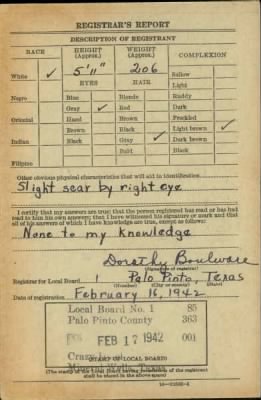 REGISTRAR'S REPORT
DESCRIPTION OF REGISTRANT
RACE HEIGHT (Approx.) WEIGHT (Approx.) COMPLEXION
White ✓ 5'11" 206 Sallow
EYES HAIR Light
Negro Blue Blonde Ruddy
Gray ✓ Red Dark
Oriental Hazel Brown Freckled
Brown Black Light brown ✓
Indian Black Gray ✓ Dark brown
Bald Black
Filipino
Other obvious physical characteristics that will aid in identification
Slight scar by right eye
I certify that my answers are true; that the person registered has read or has had
read to him his own answers; that I have witnessed his signature or mark and that
all of his answers of which I have knowledge are true, except as follows:
None to my knowledge
Dorothy Boulware
(Signature of registrar)
Registrar for Local Board 1 Palo Pinto Texas
(Number) (City or county) (State)
Date of registration February 16, 1942
Local Board No. 1 85
Palo Pinto County 363
FEB 17 1942 001
STAMP OF LOCAL BOARD
(The stamp of the Local Board having jurisdiction of the registrant
shall be placed in the above space)